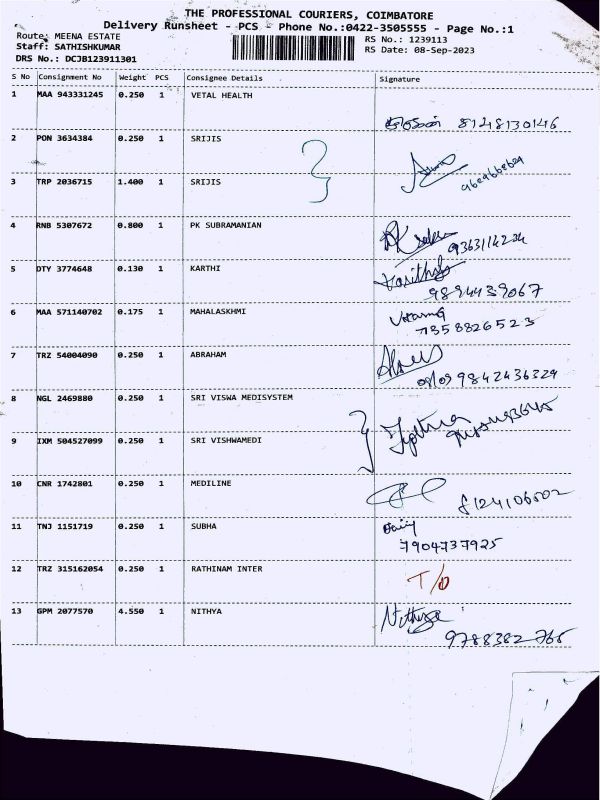 THE PROFESSIONAL COURIERS, COIMBATORE
Delivery Runsheet - PCS - Phone No.:0422-3505555 - Page No.:1
Route: MEENA ESTATE
Staff: SATHISHKUMAR
DRS No.: DCJB123911301
RS No.: 1239113
RS Date: 08-Sep-2023
S No Consignment No Weight PCS Consignee Details Signature
1 MAA 943331245 0.250 1 VETAL HEALTH
8148130146
2 PON 3634384 0.250 1 SRIJIS
3 TRP 2036715 1.400 1 SRIJIS
4 RNB 5307672 0.800 1 PK SUBRAMANIAN
9363114224
5 DTY 3774648 0.130 1 KARTHI
9894439067
6 MAA 571140702 0.175 1 MAHALASKHMI
7358826523
7 TRZ 54004090 0.250 1 ABRAHAM
08/09 9842436329
8 NGL 2469880 0.250 1 SRI VISWA MEDISYSTEM
9 IXM 504527099 0.250 1 SRI VISHWAMEDI
10 CNR 1742801 0.250 1 MEDILINE
8124106502
11 TNJ 1151719 0.250 1 SUBHA
7904737925
12 TRZ 315162054 0.250 1 RATHINAM INTER T/D
13 GPM 2077570 4.550 1 NITHYA Nithya
9788382766